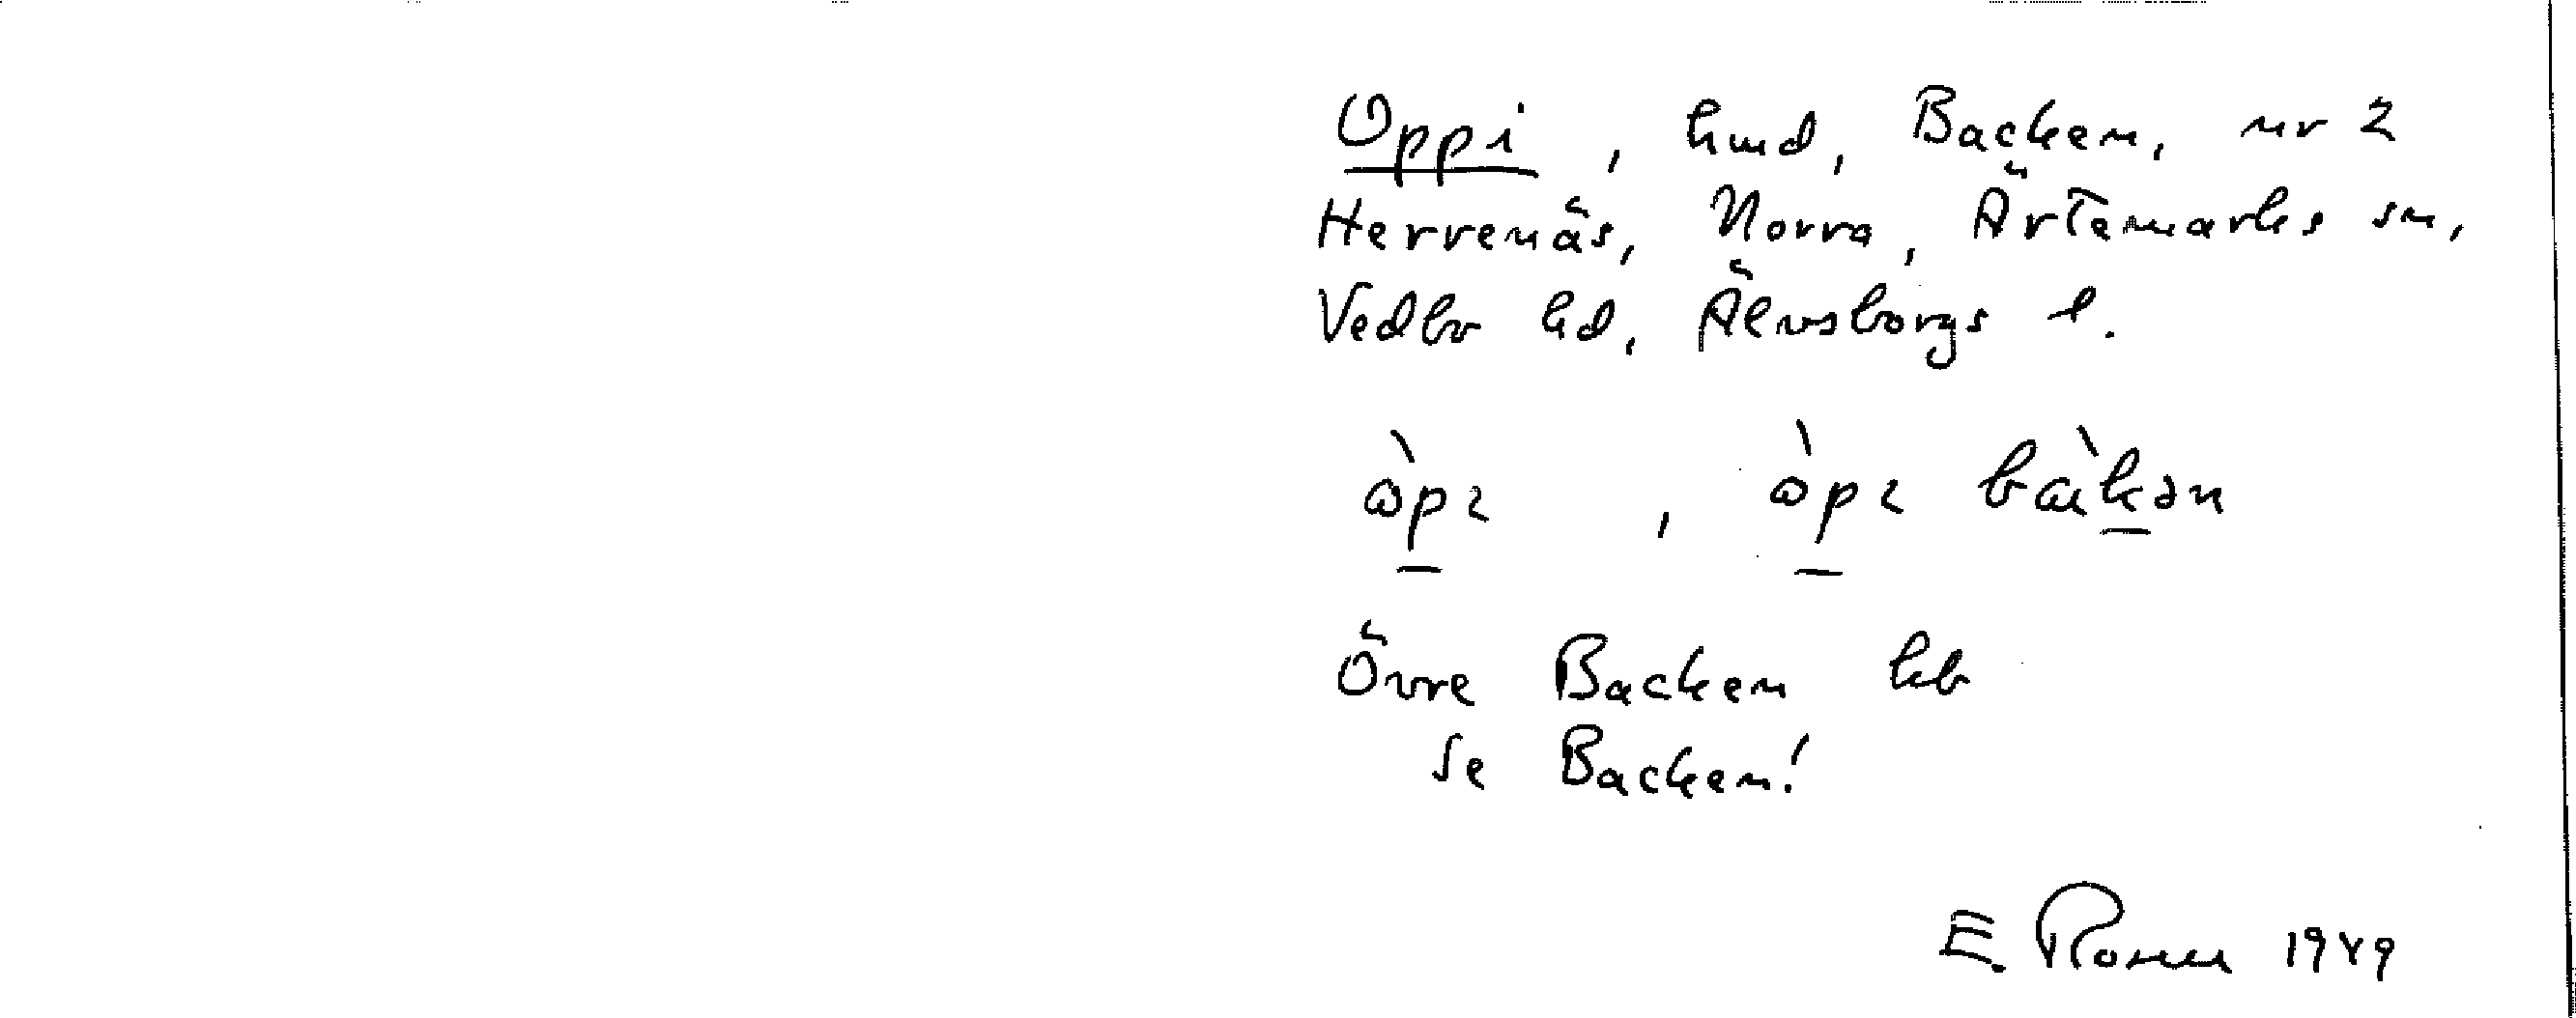 Oppi, hmd, Backen, nr 2
Herrenäs, Norra, Ärtemarks sn,
Vedbo hd, Älvsborgs l.
òpɩ, òpɩ bàkən
Övre Backen kb
se Backen!
E. Rosell 1949